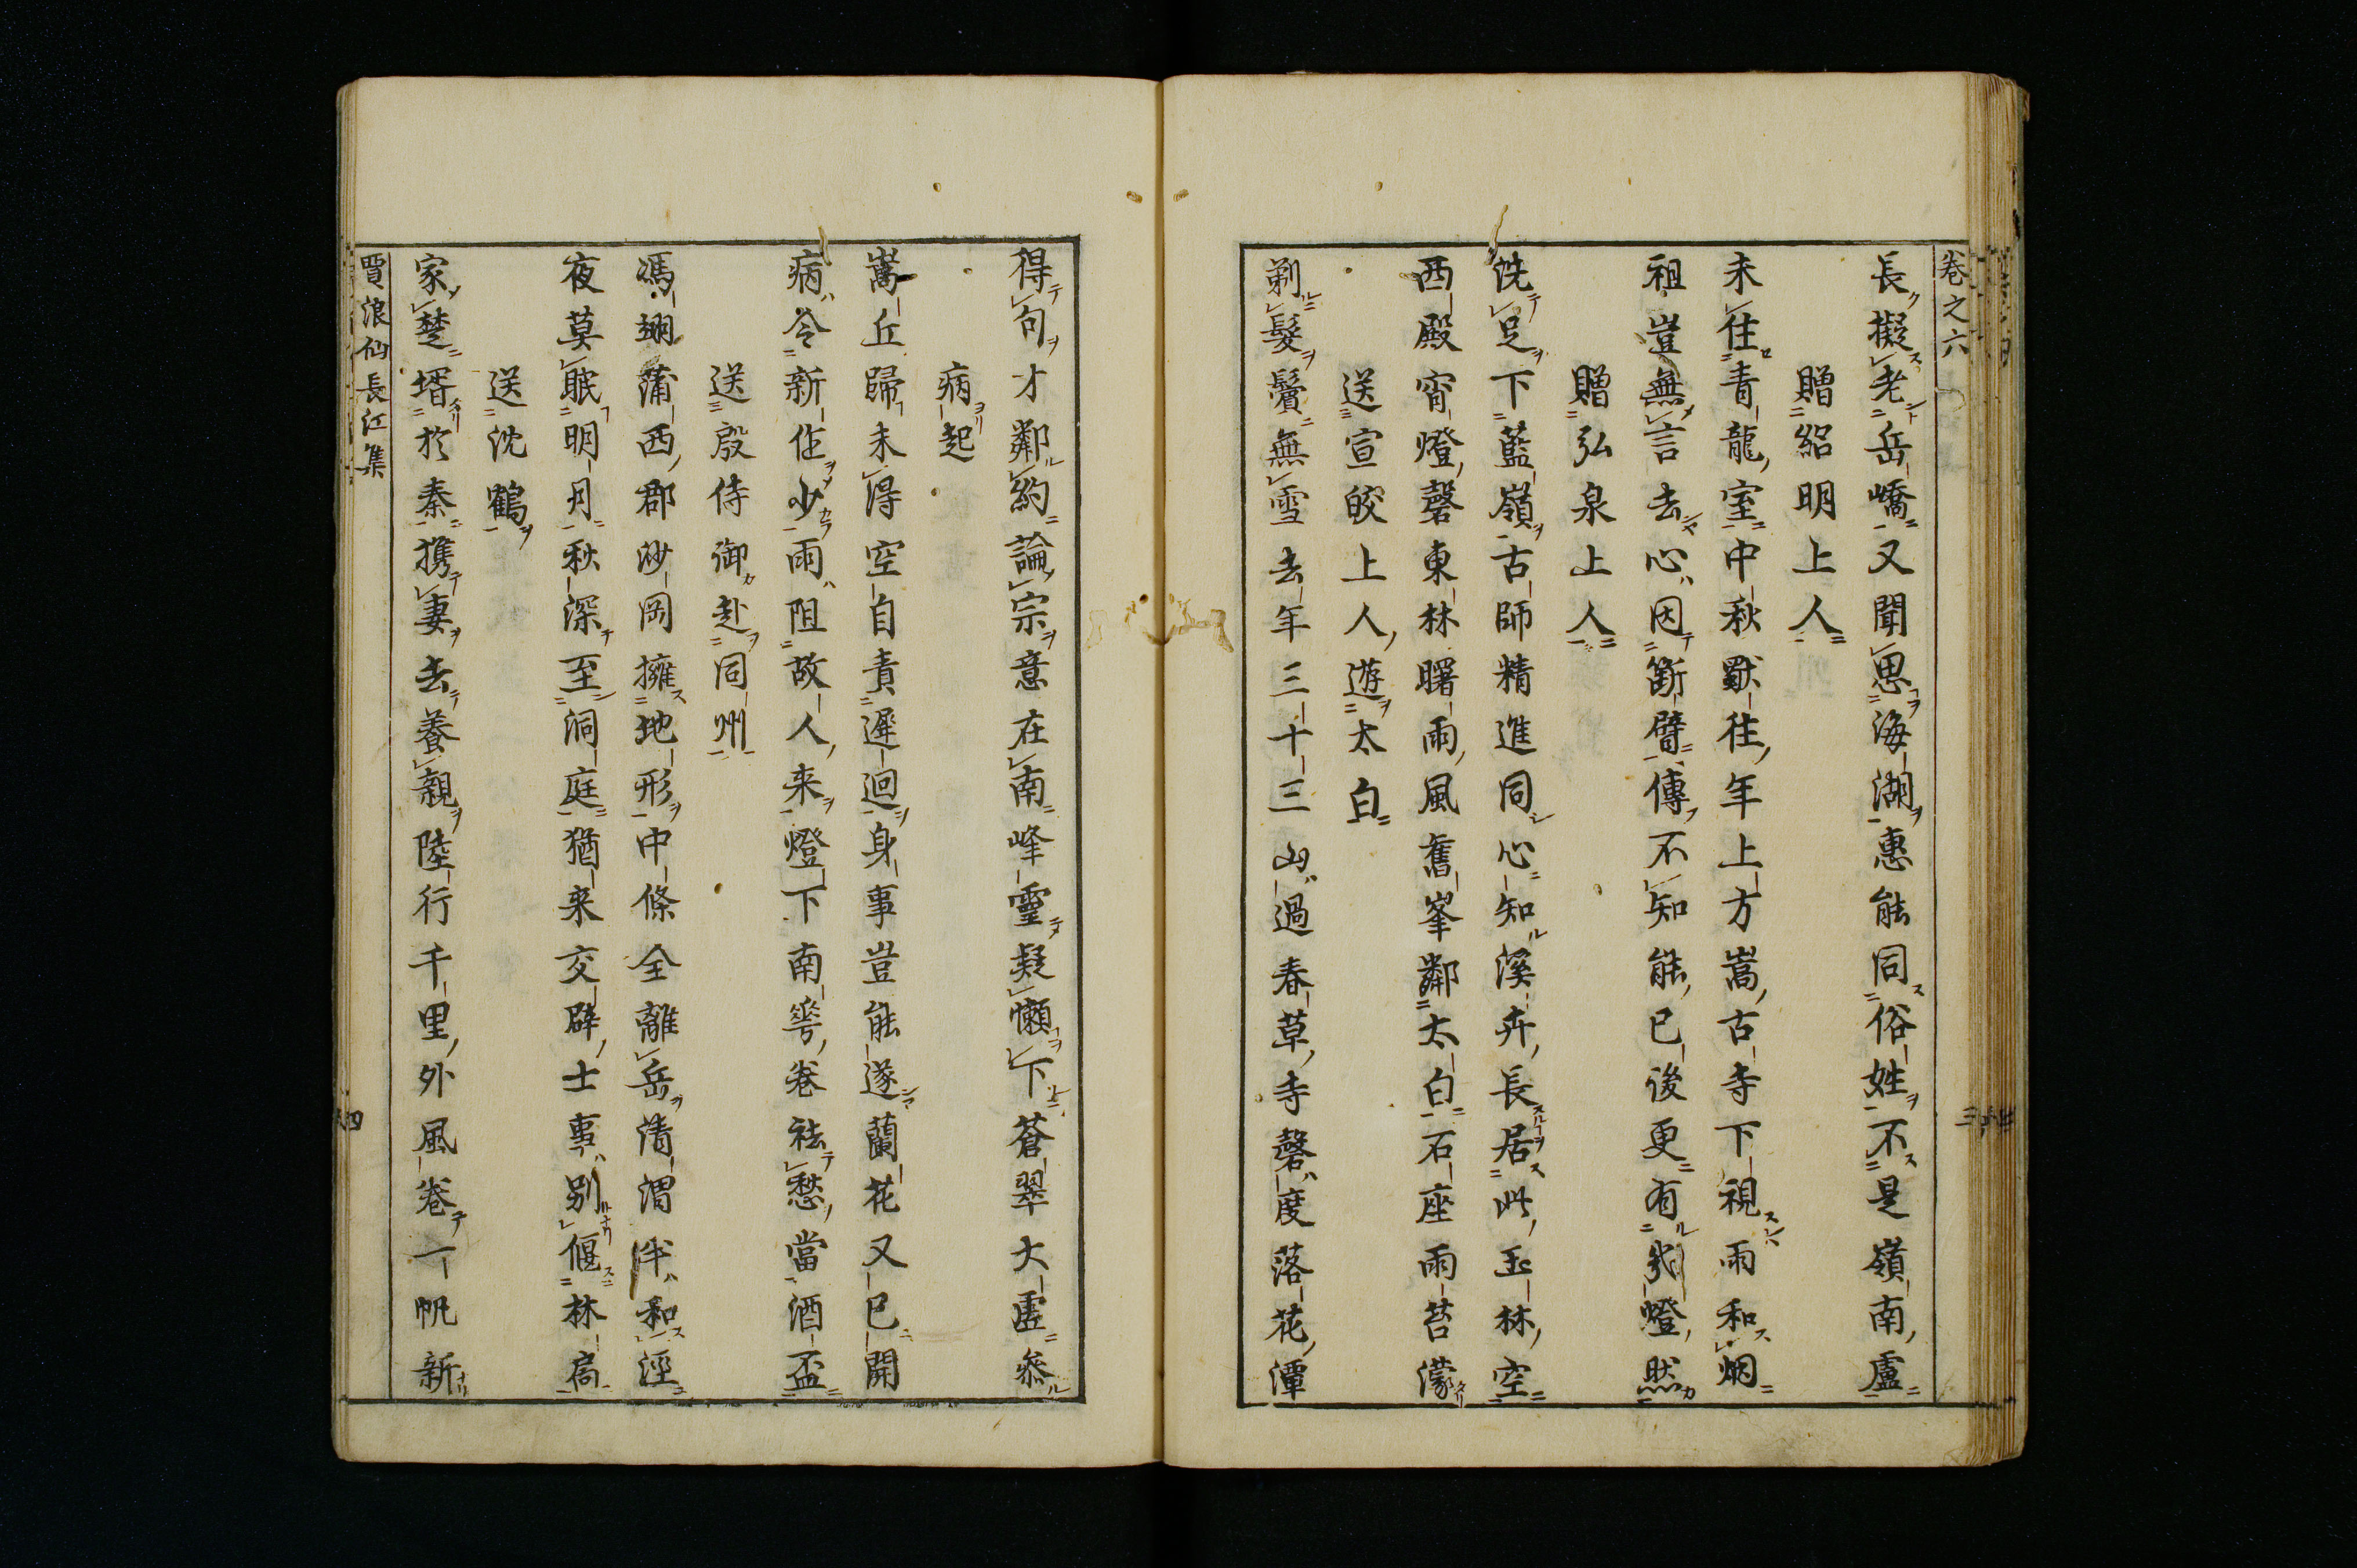 卷之六
長擬老岳嶠又聞思海湖惠能同俗姓不是嶺南盧
贈紹明上人
未住青龍室中秋獸往年上方嵩古寺下視雨和烟
祖豈無言去心因斷臂傳不知能已後更有幾燈然
贈弘泉上人
洗足下藍嶺古師精進同心知溪卉長居此玉林空
西殿宵燈磬東林曙雨風舊峯鄰太白石座雨苔濛
送宣皎上人遊太白
剃髮鬢無雪去年三十三山過春草寺磬度落花潭
得句才鄰約論宗意在南峰靈疑懶下蒼翠大虛參
病起
嵩丘歸未得空自責遲迴身事豈能遂蘭花又已開
病令新作少雨阻故人来燈下南華卷袪愁當酒盃
送殷侍御赴同州
馮翊蒲西郡沙岡擁地形中條全離岳清渭半和涇
夜莫眠明月秋深至洞庭猶来交辟士事別偃林扃
送沈鶴
家楚壻於秦携妻去養親陸行千里外風卷一帆新
賈浪仙長江集
四